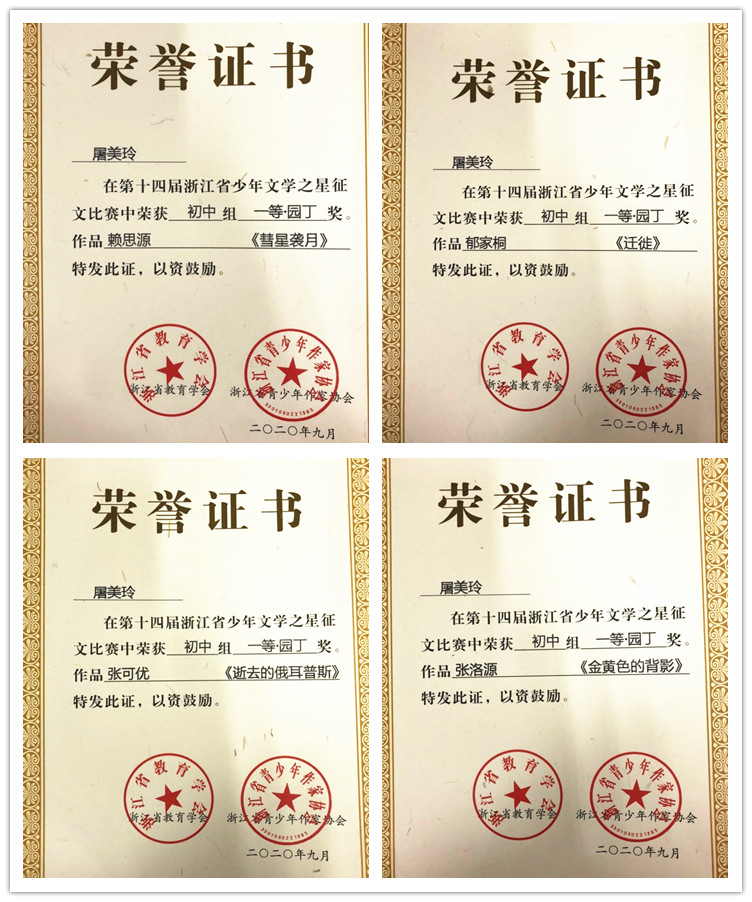 荣誉证书
屠美玲
在第十四届浙江省少年文学之星征
文比赛中荣获 初中 组 一等·园丁 奖。
作品 赖思源 《彗星袭月》
特发此证，以资鼓励。
浙江省教育学会
浙江省教育学会
浙江省青少年作家协会
浙江省青少年作家协会
二〇二〇年九月
荣誉证书
屠美玲
在第十四届浙江省少年文学之星征
文比赛中荣获 初中 组 一等·园丁 奖。
作品 郁家桐 《迁徙》
特发此证，以资鼓励。
浙江省教育学会
浙江省教育学会
浙江省青少年作家协会
浙江省青少年作家协会
二〇二〇年九月
荣誉证书
屠美玲
在第十四届浙江省少年文学之星征
文比赛中荣获 初中 组 一等·园丁 奖。
作品 张可优 《逝去的俄耳普斯》
特发此证，以资鼓励。
浙江省教育学会
浙江省教育学会
浙江省青少年作家协会
浙江省青少年作家协会
二〇二〇年九月
荣誉证书
屠美玲
在第十四届浙江省少年文学之星征
文比赛中荣获 初中 组 一等·园丁 奖。
作品 张洛源 《金黄色的背影》
特发此证，以资鼓励。
浙江省教育学会
浙江省教育学会
浙江省青少年作家协会
浙江省青少年作家协会
二〇二〇年九月